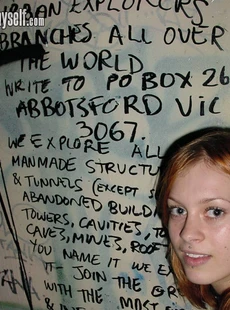 myself.com
URBAN EXPLORERS
BRANCHES ALL OVER
THE WORLD
WRITE TO PO BOX 26
ABBOTSFORD VIC
3067.
WE EXPLORE ALL
MANMADE STRUCTU
& TUNNELS (EXCEPT S
ABANDONED BUILD
TOWERS, CAVITIES, TO
CAVES, MINES, ROOF
YOU NAME IT WE EX
IT- JOIN THE GR
WITH THE MOST